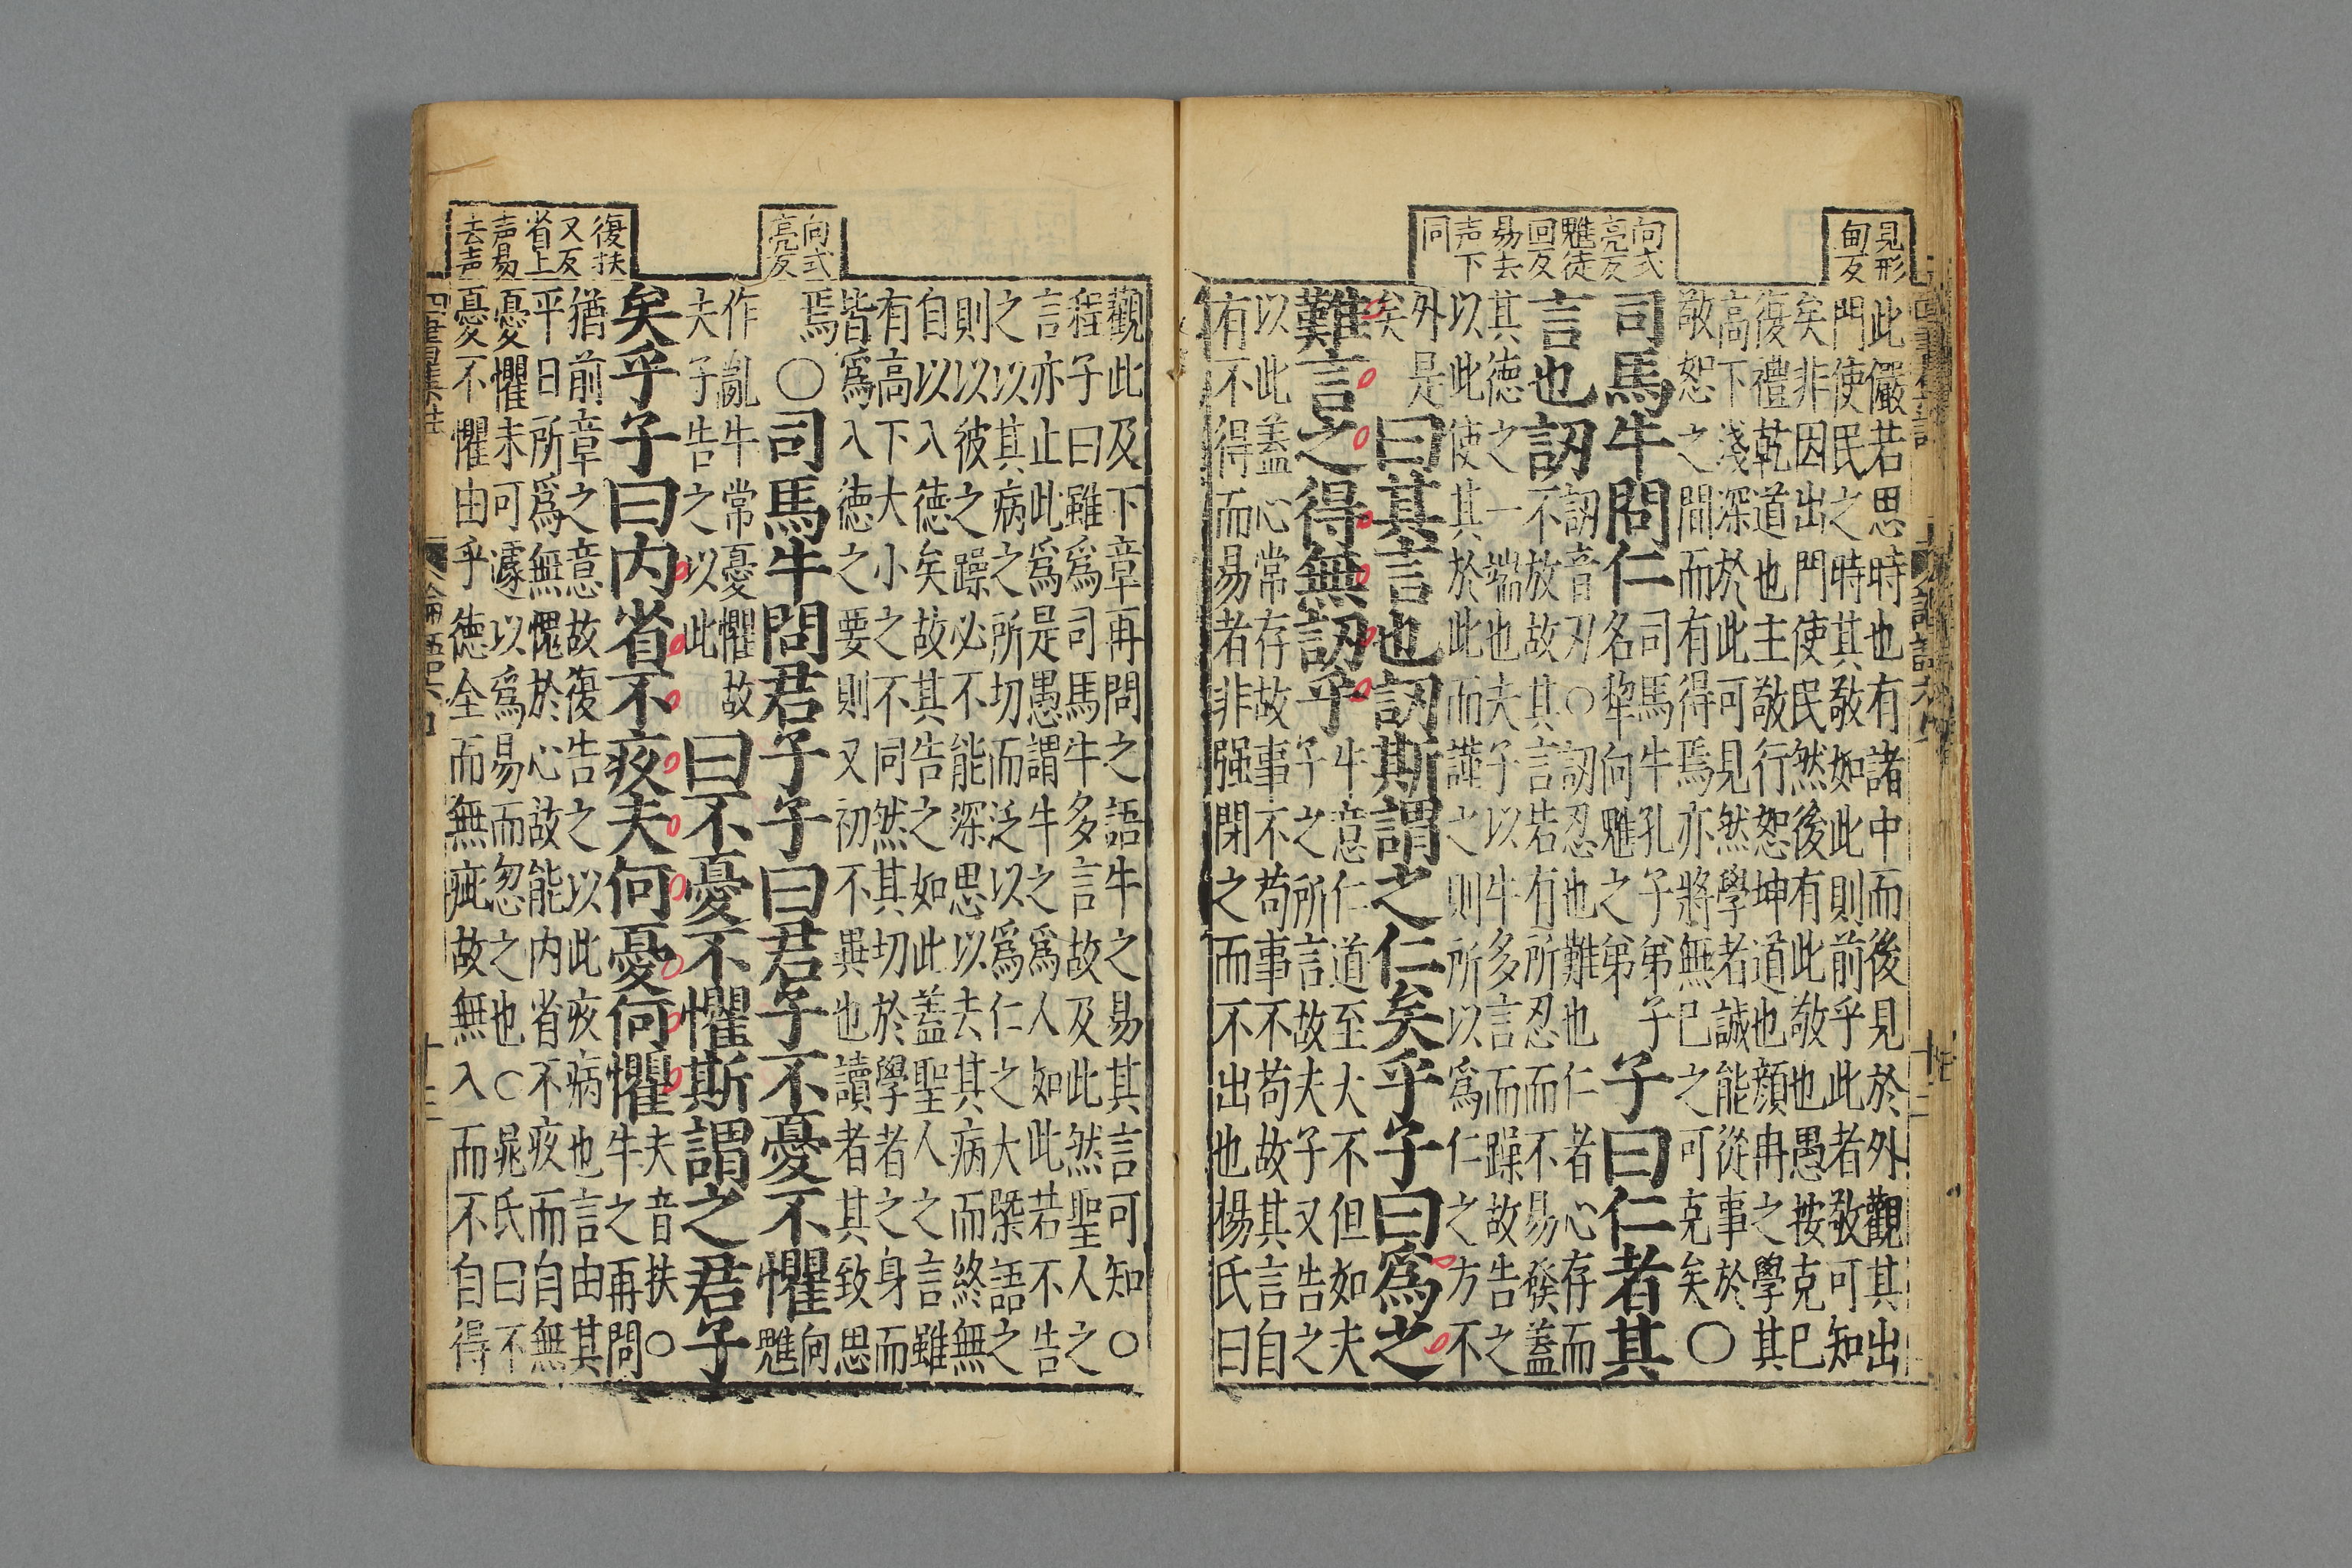 見形
甸反
向式
亮反
魋徒
回反
易去
声下
同
此儼若思時也有諸中而後見於外觀其出
門使民之時其敬如此則前乎此者敬可知
矣非因出門使民然後有此敬也愚按克己
復禮乾道也主敬行恕坤道也顔冉之學其
高下淺深於此可見然學者誠能從事於
敬恕之間而有得焉亦將無己之可克矣○
司馬牛問仁
司馬牛孔子弟子
名犂向魋之弟
子曰仁者其
言也訒
訒音刃○訒忍也難也仁者心存而
不放故其言若有所忍而不易發蓋
其德之一端也夫子以牛多言而躁故告之
以此使其於此而謹之則所以爲仁之方不
外是
矣
曰其言也訒斯謂之仁矣乎子曰爲之
難言之得無訒乎
牛意仁道至大不但如夫
子之所言故夫子又告之
以此蓋心常存故事不苟事不苟故其言自
有不得而易者非强閉之而不出也楊氏曰
向式
亮反
復扶
又反
省上
声易
去声
觀此及下章再問之語牛之易其言可知○
程子曰雖爲司馬牛多言故及此然聖人之
言亦止此爲是愚謂牛之爲人如此若不告
之以其病之所切而泛以爲仁之大槩語之
則以彼之躁必不能深思以去其病而終無
自以入徳矣故其告之如此蓋聖人之言雖
有高下大小之不同然其切於學者之身而
皆爲入徳之要則又初不異也讀者其致思
焉○司馬牛問君子子曰君子不憂不懼
向
魋
作亂牛常憂懼故
夫子告之以此
曰不憂不懼斯謂之君子
矣乎子曰内省不疚夫何憂何懼
夫音扶○
牛之再問
猶前章之意故復告之以此疚病也言由其
平日所爲無愧於心故能内省不疚而自無
憂懼未可遽以爲易而忽之也○晁氏曰不
憂不懼由乎徳全而無疵故無入而不自得